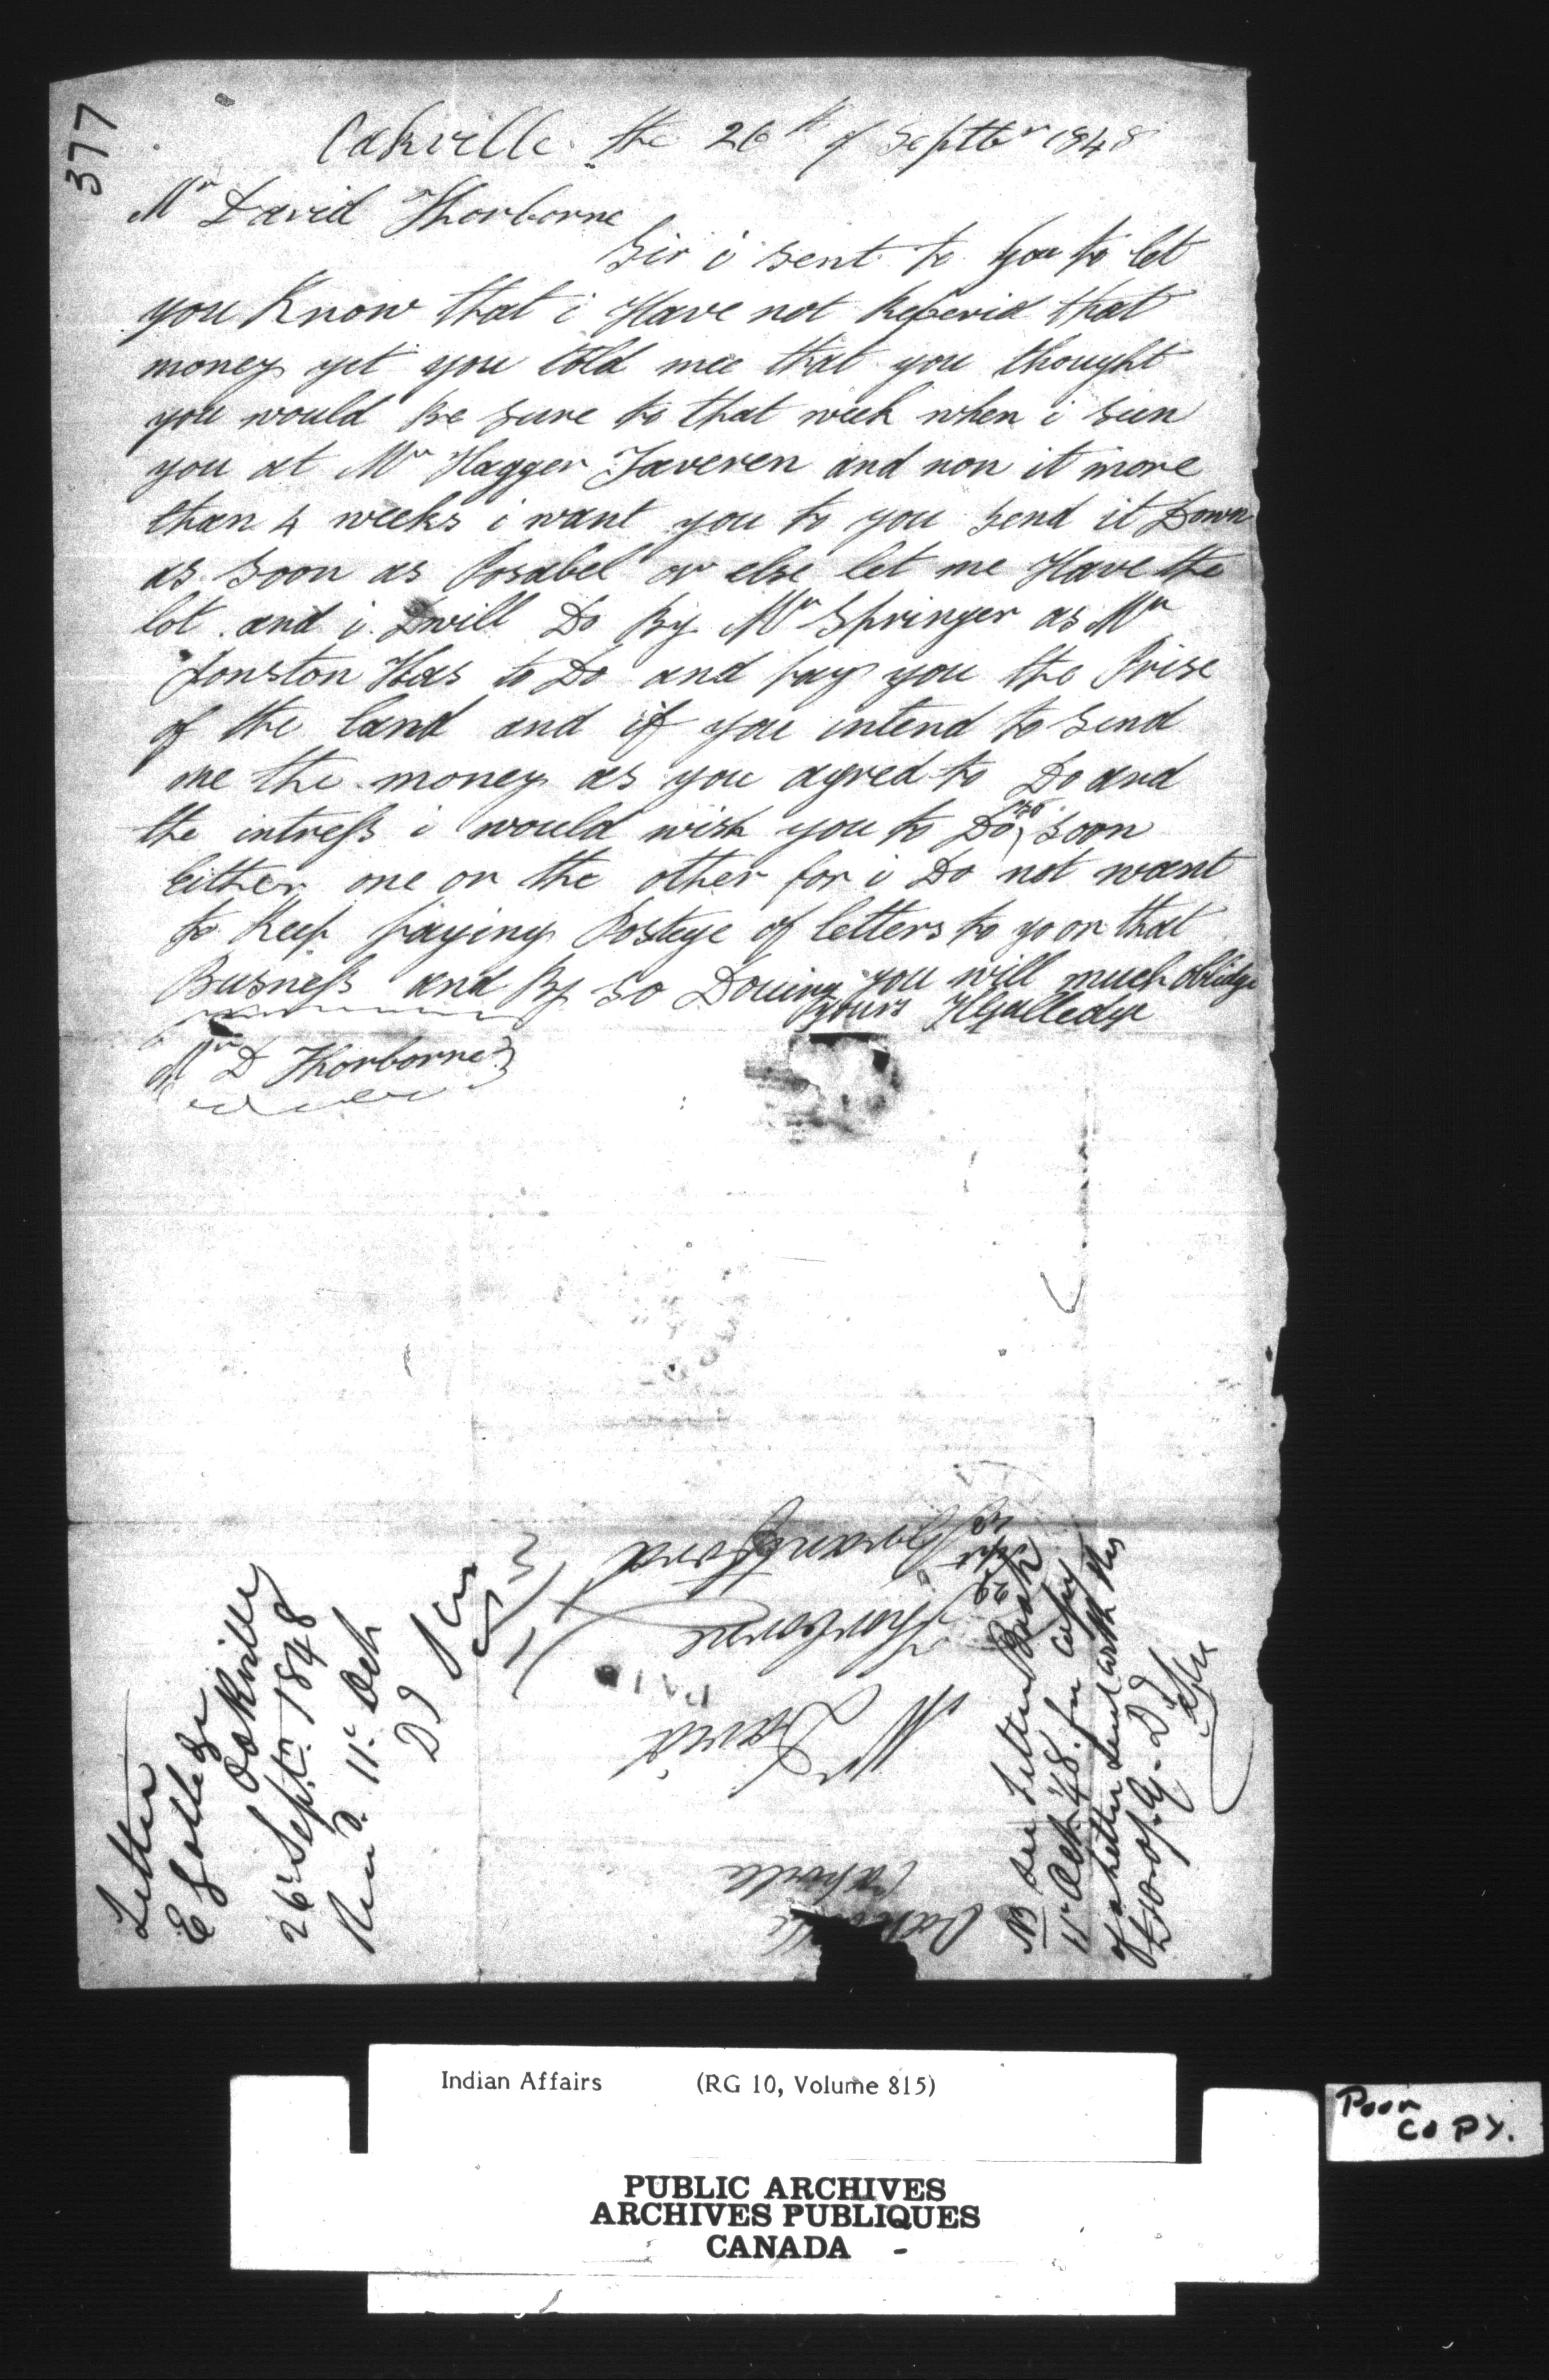 377
Oakville the 26th of Septtbr 1848
Mr David Thorborne
Sir i sent to you to let
you Know that i Have not Receivid that
money yet you told mee that you thought
you would be sure to that week when i seen
you at Mr Hagger Taveren and non it more
than 4 weeks i want you to you send it Down
as soon as Posabel or else let me Have the
lot and i will Do By Mr Springer as Mr
Jonston Has to Do and pay you the Prise
of the land and if you intend to send
me the money as you agred to Do and
the intress i would wish you to Do soon
Either one or the other for i Do not want
to Keep paying Postege of letters to go on that
Busness and By so Douing you will much oblidge
yours Gulledge
Mr D Thorborne
Letter
E Golledge
Oakville
26 Septr 1848
Recd. 11 Oct
Mr David
PAID
Thorborne
Brantford
29 Sept
NB see Letter Book
11 Oct 48. for copy
of a letter sent with the
Oakville
Oakville
Indian Affairs (RG 10, Volume 815)
PUBLIC ARCHIVES
ARCHIVES PUBLIQUES
CANADA
Poor
COPY.